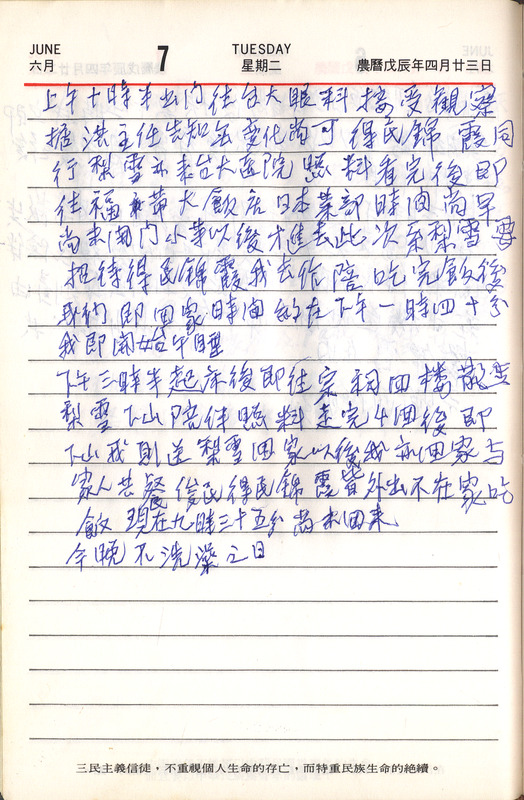 JUNE 7 TUESDAY
六月 星期二 農曆戊辰年四月廿三日
上午十時半出門往台大眼科 接受觀察
據洪主任告知無變化尚可 得民錦霞同
行梨雪亦來台大医院 眼科看完後即
往福華大飯店日本菜部時间尚早
尚未開門小等以後才進去此次系梨雪要
招待得民錦霞我去作陪 吃完飯後
我們即回家時间約在下午一時四十分
我即開始午睡
下午三時半起床後即往宗祠四楼
梨雪下山陪伴 走完4回後即
下山我則送梨雪回家以後我亦回家与
家人共餐 俊民得民錦霞皆外出不在家吃
飯 現在九時三十五分尚未回來
今晚不洗澡之日
三民主義信徒，不重視個人生命的存亡，而特重民族生命的絶續。